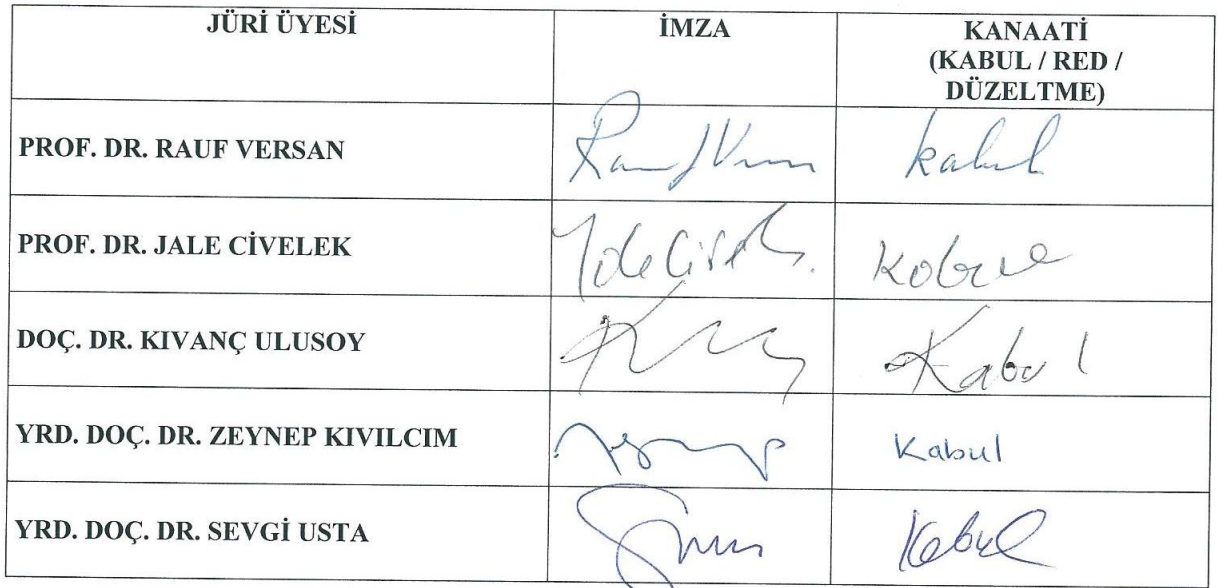 JÜRİ ÜYESİ İMZA KANAATİ
(KABUL / RED /
DÜZELTME)
PROF. DR. RAUF VERSAN kabul
PROF. DR. JALE CİVELEK Jale Civelek Kabul
DOÇ. DR. KIVANÇ ULUSOY Kabul
YRD. DOÇ. DR. ZEYNEP KIVILCIM Kabul
YRD. DOÇ. DR. SEVGİ USTA Kabul